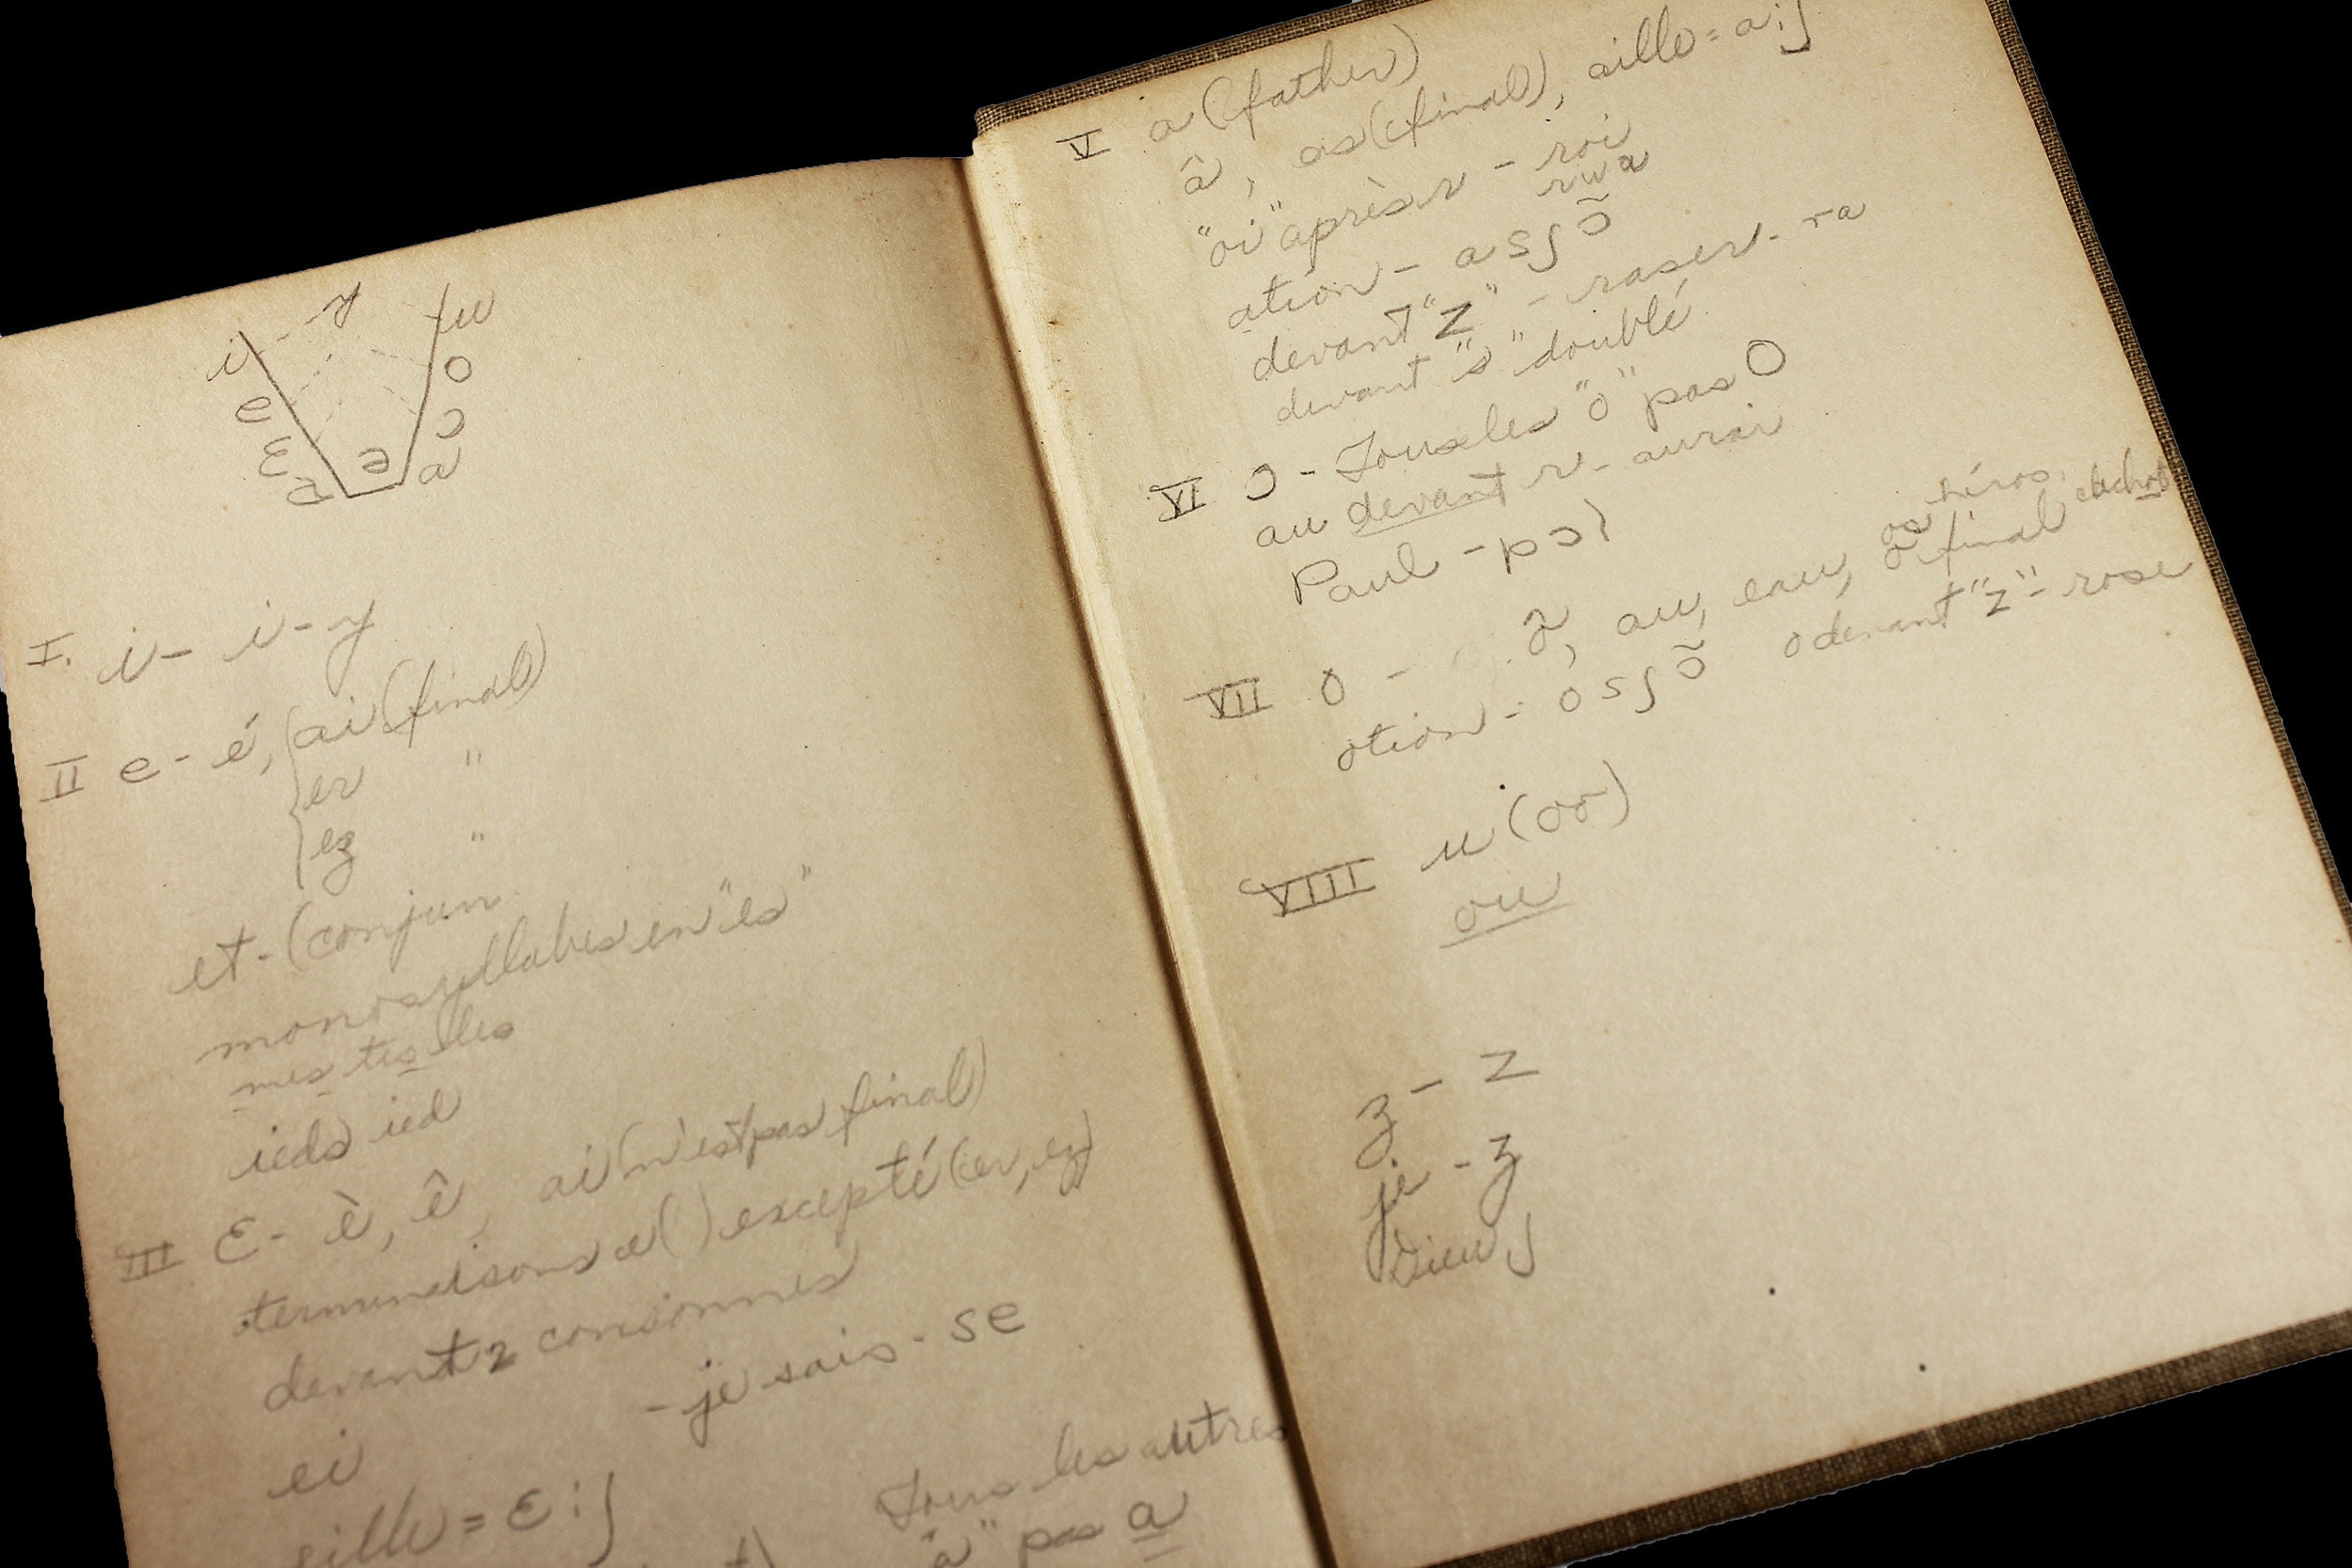 i y u
e o
ɛ ɔ
a ə a
I. i - i - y
II e - é, ai (final)
er "
ez "
et - (conjun
monosyllabes en "es"
mes tes les
ieds ied
III ɛ - è, ê, ai (n'est pas final)
terminaisons e( ) excepté (er, ez)
devant 2 consonnes
ei - je sais - se
eille = ɛ:j
Tous les autres
"a" pas a
V a (father)
â, as (final), aille = a:j
"oi" après r - roi
rwa
ation - asjɔ̃
devant "z" - raser - ra
devant "s" doublé
VI ɔ - Tous les "o" pas O
au devant r - aurai
Paul - pɔl
os héros,
VII o - ô, au, eau, o final
otion - osjɔ̃ o devant "z" - rose
VIII u (oo)
ou
z - z
je - ʒ
Dieu j